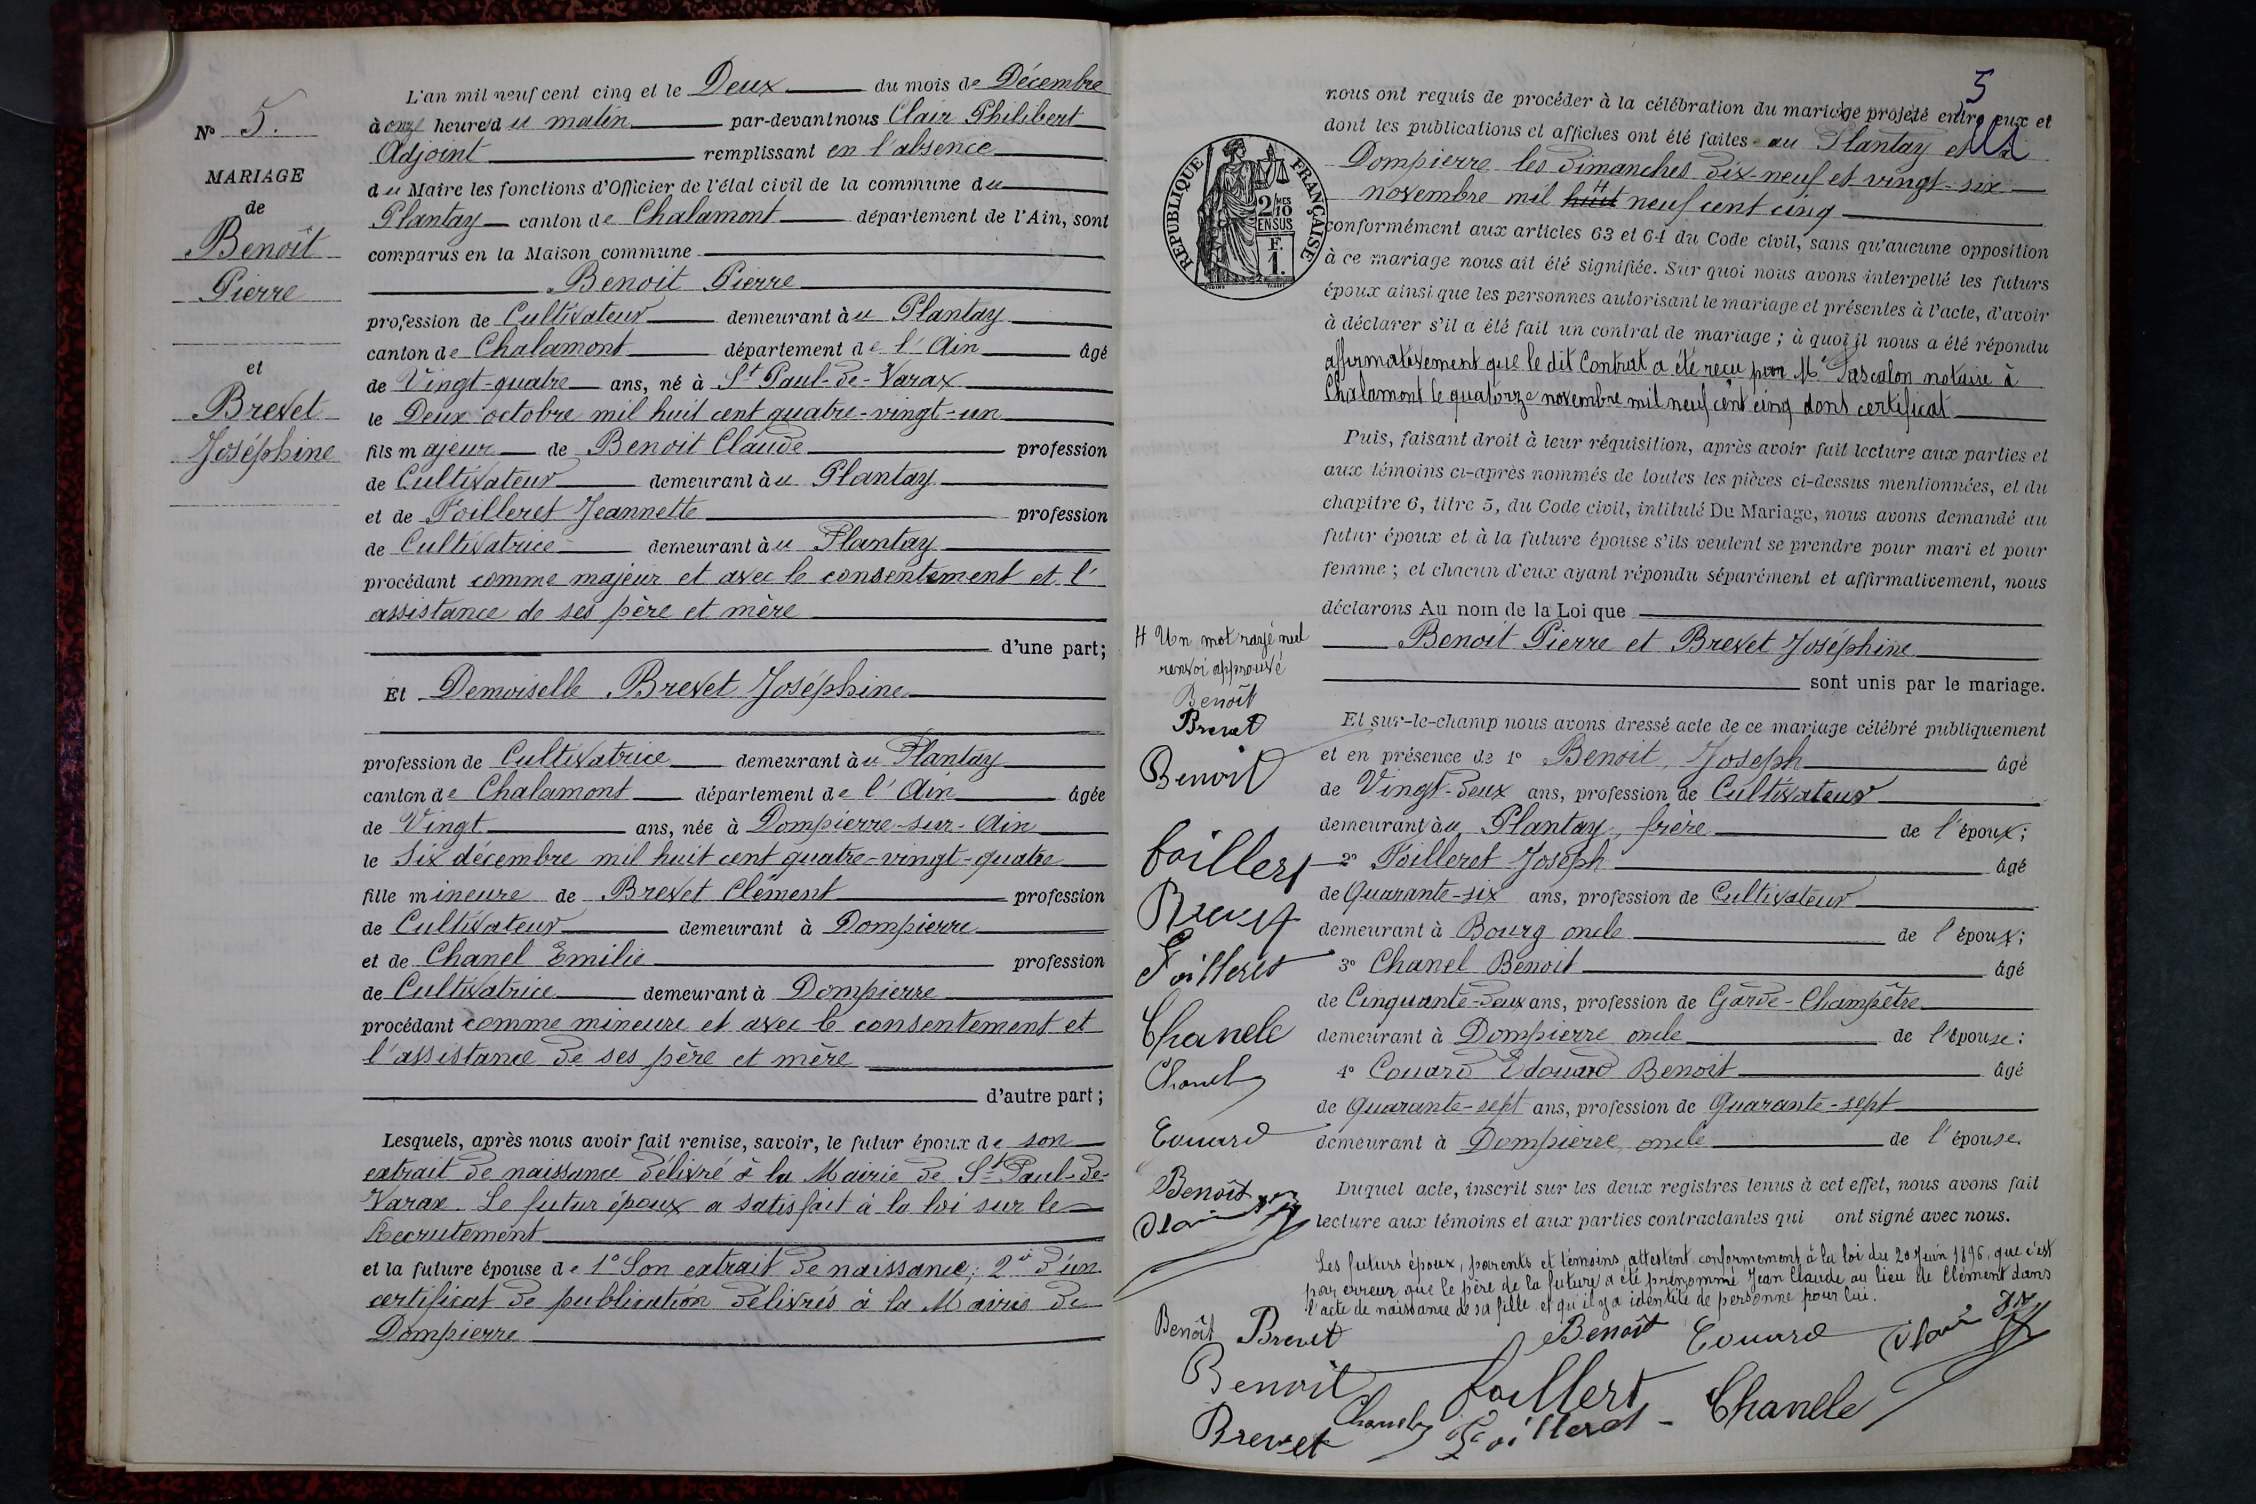 N° 5.
MARIAGE
de
Benoît
Pierre
et
Brevet
Joséphine
L'an mil neuf cent cinq et le Deux du mois de Décembre
à onze heure du matin par-devant nous Clair Philibert
Adjoint remplissant en l'absence
du Maire les fonctions d'Officier de l'état civil de la commune du
Plantay canton de Chalamont département de l'Ain, sont
comparus en la Maison commune
Benoit Pierre
profession de Cultivateur demeurant à u Plantay
canton de Chalamont département de l'Ain âgé
de Vingt-quatre ans, né à St Paul-de-Varax
le Deux octobre mil huit cent quatre-vingt-un
fils majeur de Benoit Claude profession
de Cultivateur demeurant à u Plantay
et de Foilleret Jeannette profession
de Cultivatrice demeurant à u Plantay
procédant comme majeur et avec le consentement et l'
assistance de ses père et mère
d'une part;
Et Demoiselle Brevet Joséphine
profession de Cultivatrice demeurant à u Plantay
canton de Chalamont département de l'Ain âgée
de Vingt ans, née à Dompierre-sur-Ain
le six décembre mil huit cent quatre-vingt-quatre
fille mineure de Brevet Clément profession
de Cultivateur demeurant à Dompierre
et de Chanel Emilie profession
de Cultivatrice demeurant à Dompierre
procédant comme mineure et avec le consentement et
l'assistance de ses père et mère
d'autre part;
Lesquels, après nous avoir fait remise, savoir, le futur époux de son
extrait de naissance délivré à la Mairie de St Paul-de-
Varax. Le futur époux a satisfait à la loi sur le
Recrutement
et la future épouse de 1° Son extrait de naissance; 2° d'un
certificat de publication délivrés à la Mairie de
Dompierre
5
nous ont requis de procéder à la célébration du mariage projeté entre eux et
dont les publications et affiches ont été faites au Plantay et à
Dompierre les dimanches dix-neuf et vingt-six
novembre mil huit neuf cent cinq
RÉPUBLIQUE FRANÇAISE
2/10 MES
EN SUS
F.
1.
conformément aux articles 63 et 64 du Code civil, sans qu'aucune opposition
à ce mariage nous ait été signifiée. Sur quoi nous avons interpellé les futurs
époux ainsi que les personnes autorisant le mariage et présentes à l'acte, d'avoir
à déclarer s'il a été fait un contrat de mariage; à quoi il nous a été répondu
affirmativement que le dit Contrat a été reçu par Me Pascalon notaire à
Chalamont le quatorze novembre mil neuf cent cinq dont certificat
Puis, faisant droit à leur réquisition, après avoir fait lecture aux parties et
aux témoins ci-après nommés de toutes les pièces ci-dessus mentionnées, et du
chapitre 6, titre 5, du Code civil, intitulé Du Mariage, nous avons demandé au
futur époux et à la future épouse s'ils veulent se prendre pour mari et pour
femme; et chacun d'eux ayant répondu séparément et affirmativement, nous
déclarons Au nom de la Loi que
Benoit Pierre et Brevet Joséphine
sont unis par le mariage.
Et sur-le-champ nous avons dressé acte de ce mariage célébré publiquement
et en présence de 1° Benoit, Joseph âgé
de Vingt-deux ans, profession de Cultivateur
demeurant à u Plantay, frère de l'époux;
2° Foilleret Joseph âgé
de Quarante-six ans, profession de Cultivateur
demeurant à Bourg oncle de l'époux;
3° Chanel Benoit âgé
de Cinquante-deux ans, profession de Garde-Champêtre
demeurant à Dompierre oncle de l'épouse:
4° Couard Edouard Benoit âgé
de Quarante-sept ans, profession de Quarante-sept
demeurant à Dompierre oncle de l'épouse.
Duquel acte, inscrit sur les deux registres tenus à cet effet, nous avons fait
lecture aux témoins et aux parties contractantes qui ont signé avec nous.
Les futurs époux, parents et témoins attestent conformément à la loi du 20 Juin 1896, que c'est
par erreur que le père de la future a été prénommé Jean Claude au lieu de Clément dans
l'acte de naissance de sa fille et qu'il y a identité de personne pour lui.
H Un mot rayé nul
renvoi approuvé
Benoît
Brevet
Benoit
foillert
Brevet
Foilleret
Chanele
Chanel
Couard
Benoît
Clair
Benoît Brevet Benoît Couard Clair
Benoit foillert Chanele
Brevet Chanel Foilleret